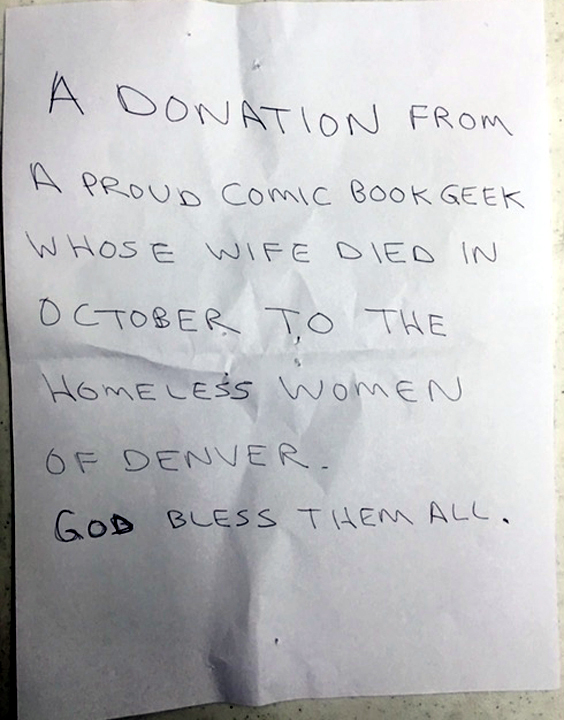 A DONATION FROM
A PROUD COMIC BOOK GEEK
WHOSE WIFE DIED IN
OCTOBER TO THE
HOMELESS WOMEN
OF DENVER.
GOD BLESS THEM ALL.